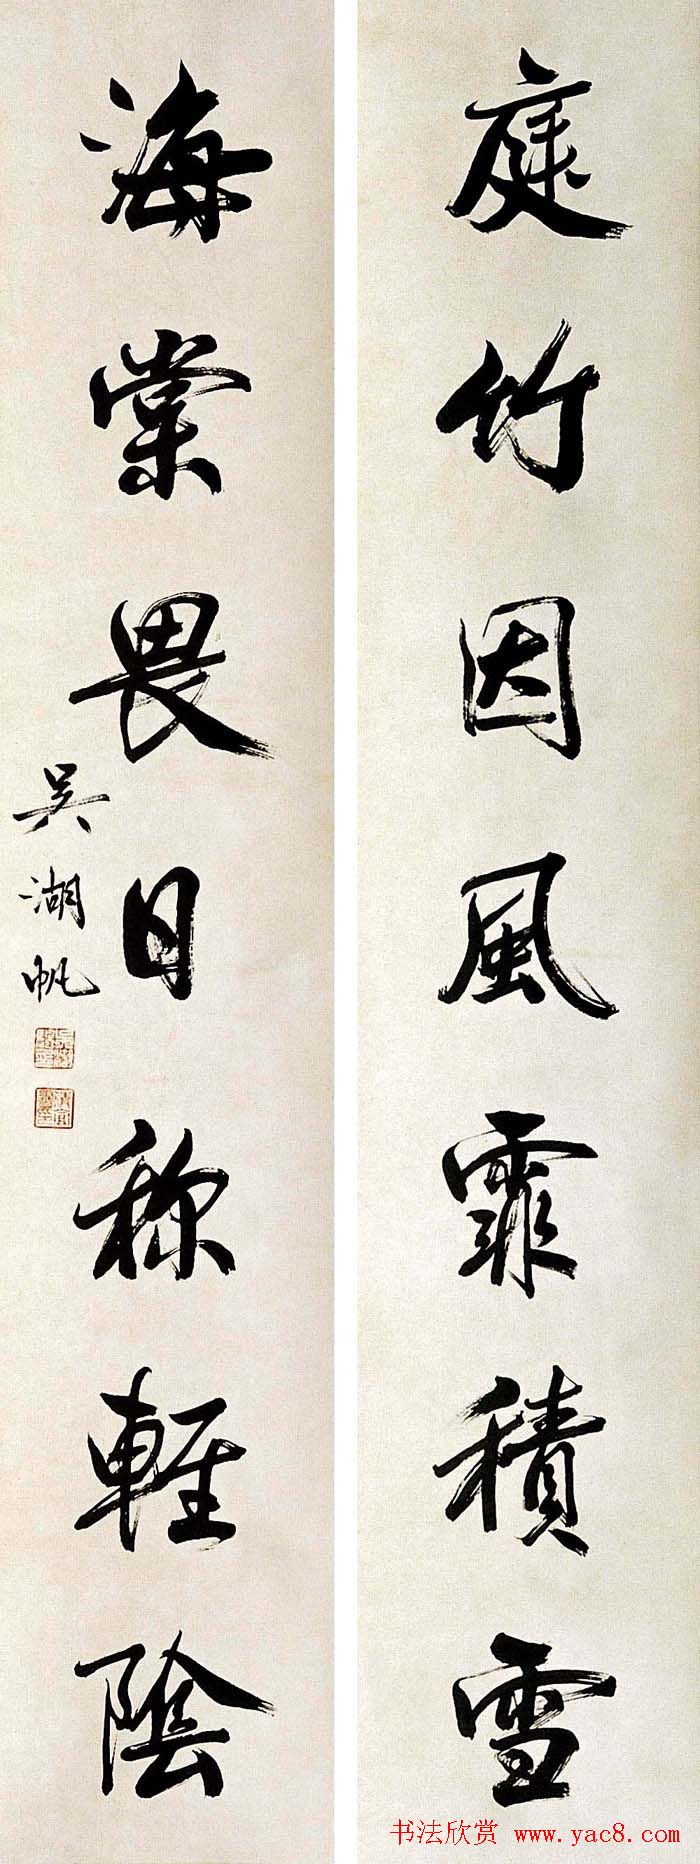 庭竹因風霏積雪
海棠畏日称輕陰
吳湖帆
书法欣赏 www.yac8.com